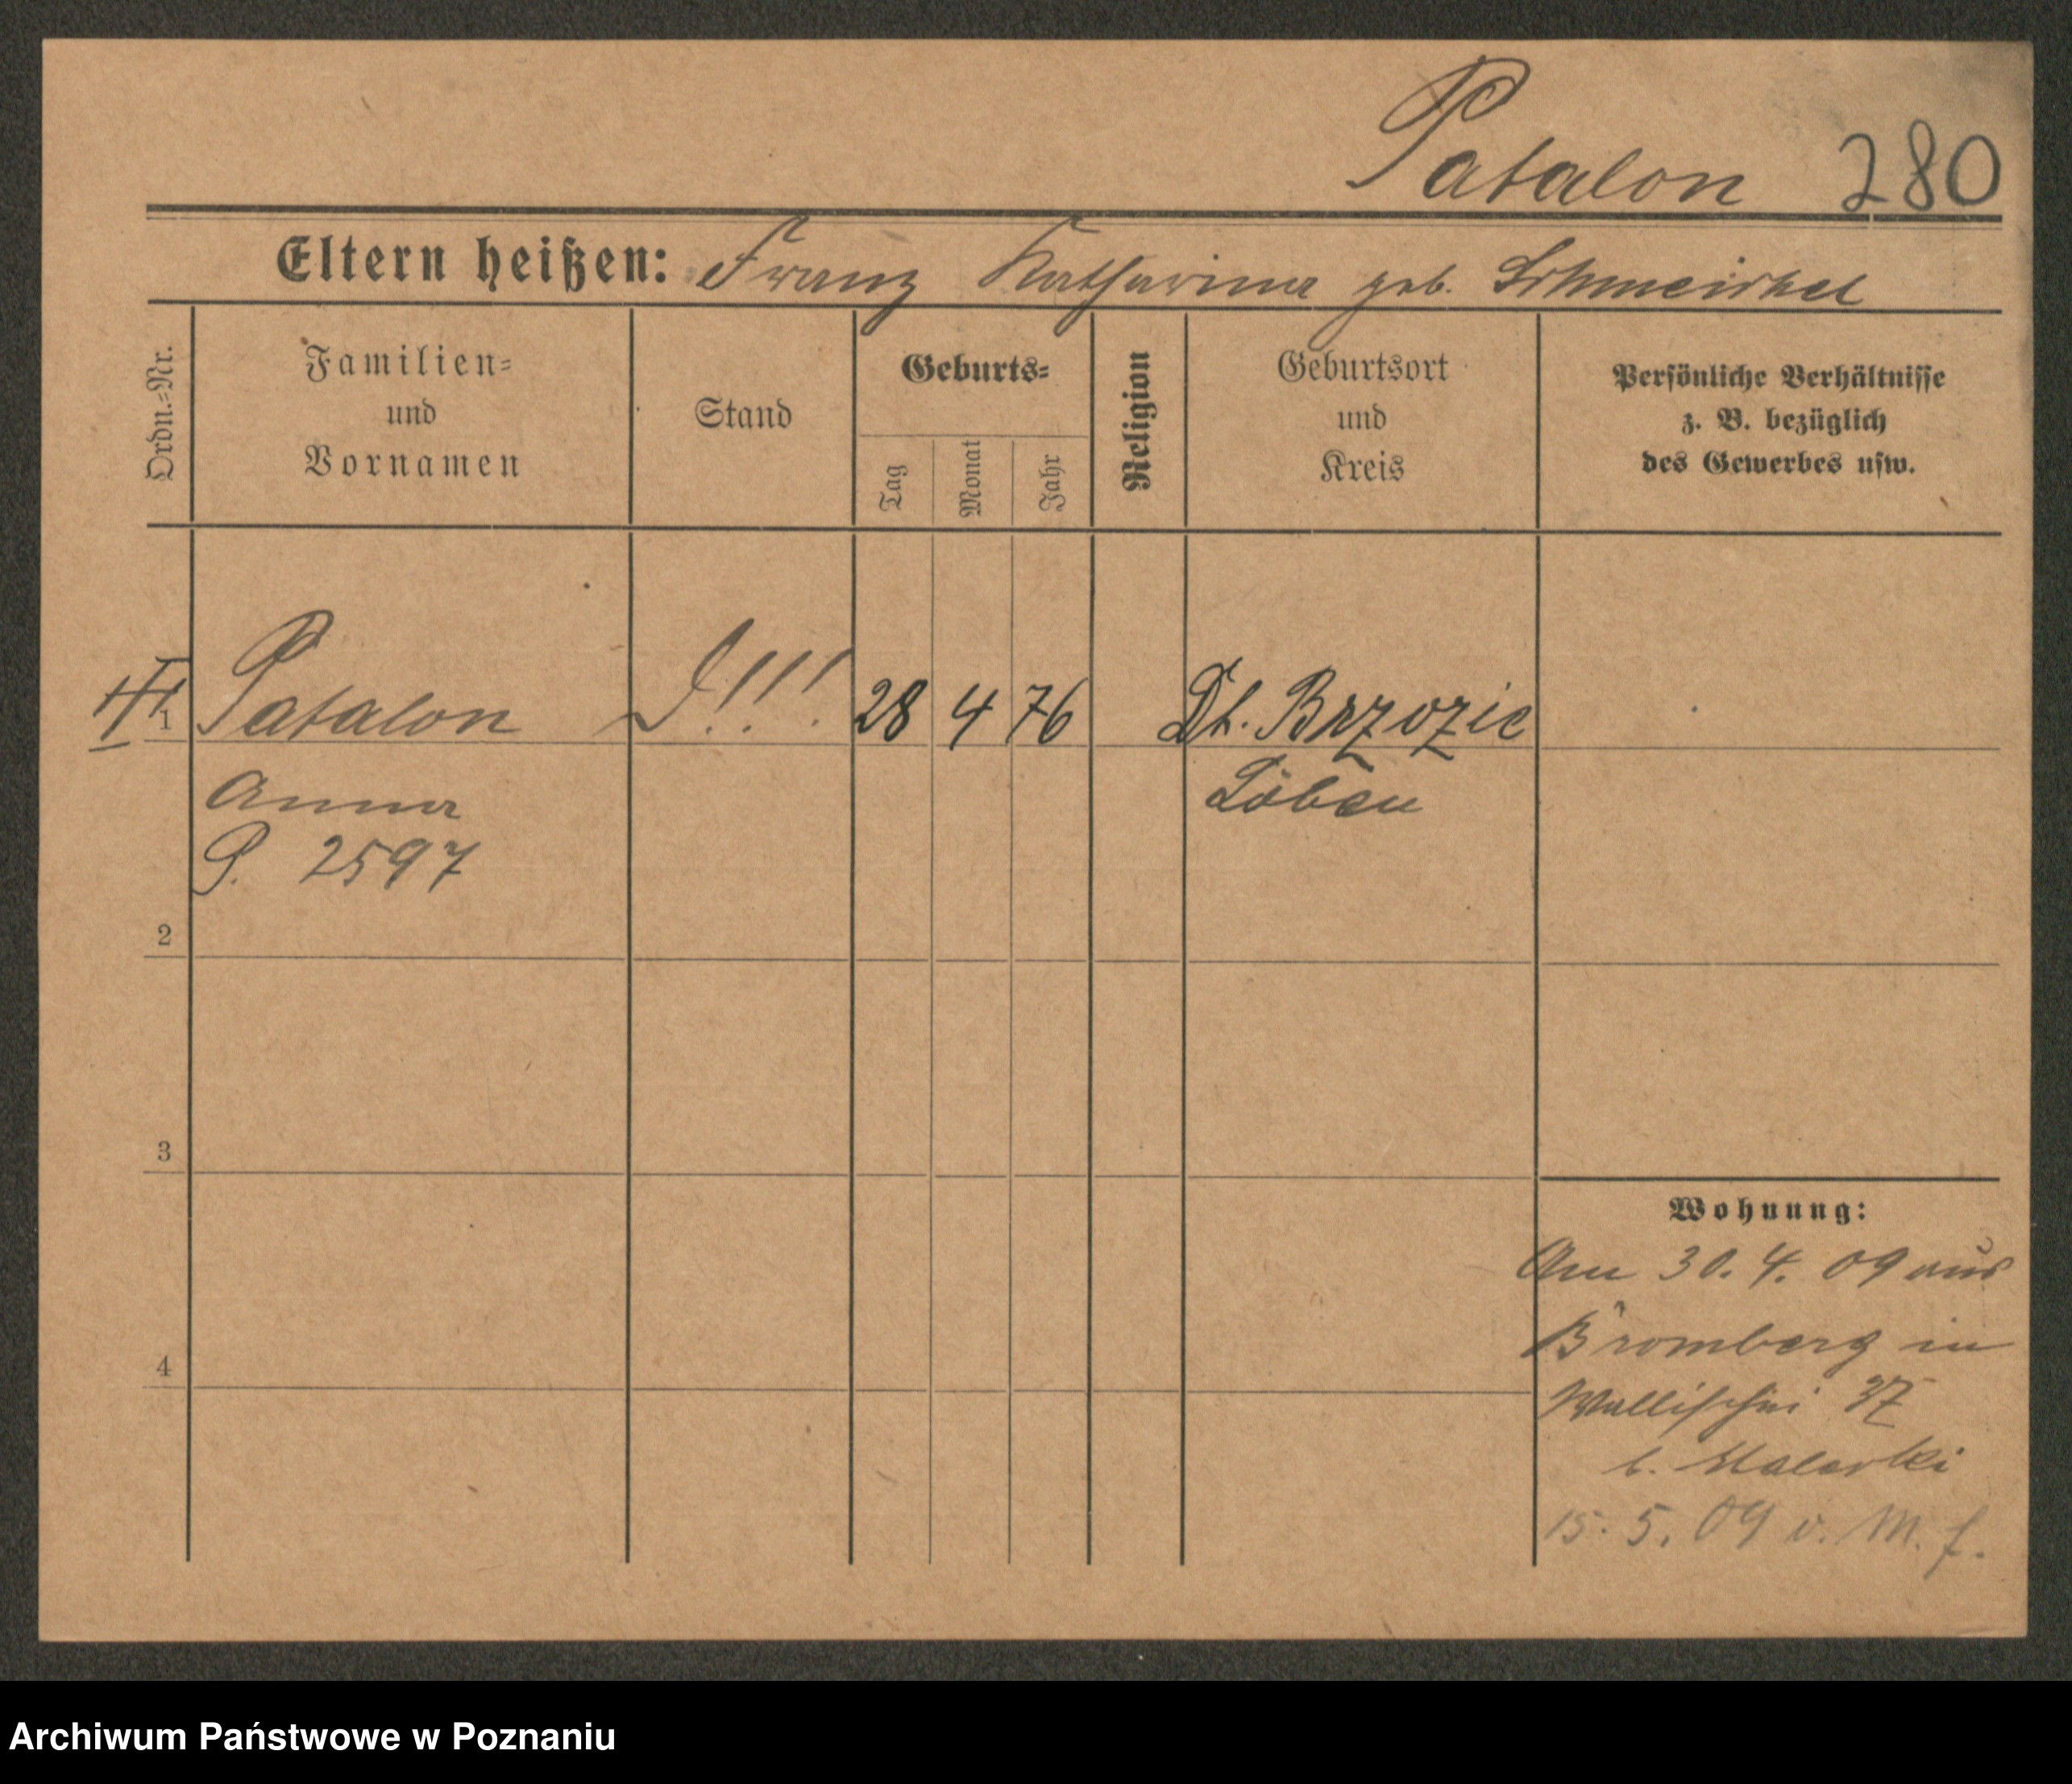 Patalon 280
Eltern heißen: Franz Katharina geb.
Ordn.-Nr.
Familien-
und
Vornamen
Stand
Geburts-
Tag
Monat
Jahr
Religion
Geburtsort
und
Kreis
Persönliche Verhältnisse
z. B. bezüglich
des Gewerbes usw.
1 Patalon !!! 28 4 76 Dt. Brzozie
Anna Löbau
P. 2597
2
3
Wohnung:
Am 30. 4. 09 aus
Bromberg in
4
Wallischei 37
b.
15. 5. 09 v. M. f.
Archiwum Państwowe w Poznaniu